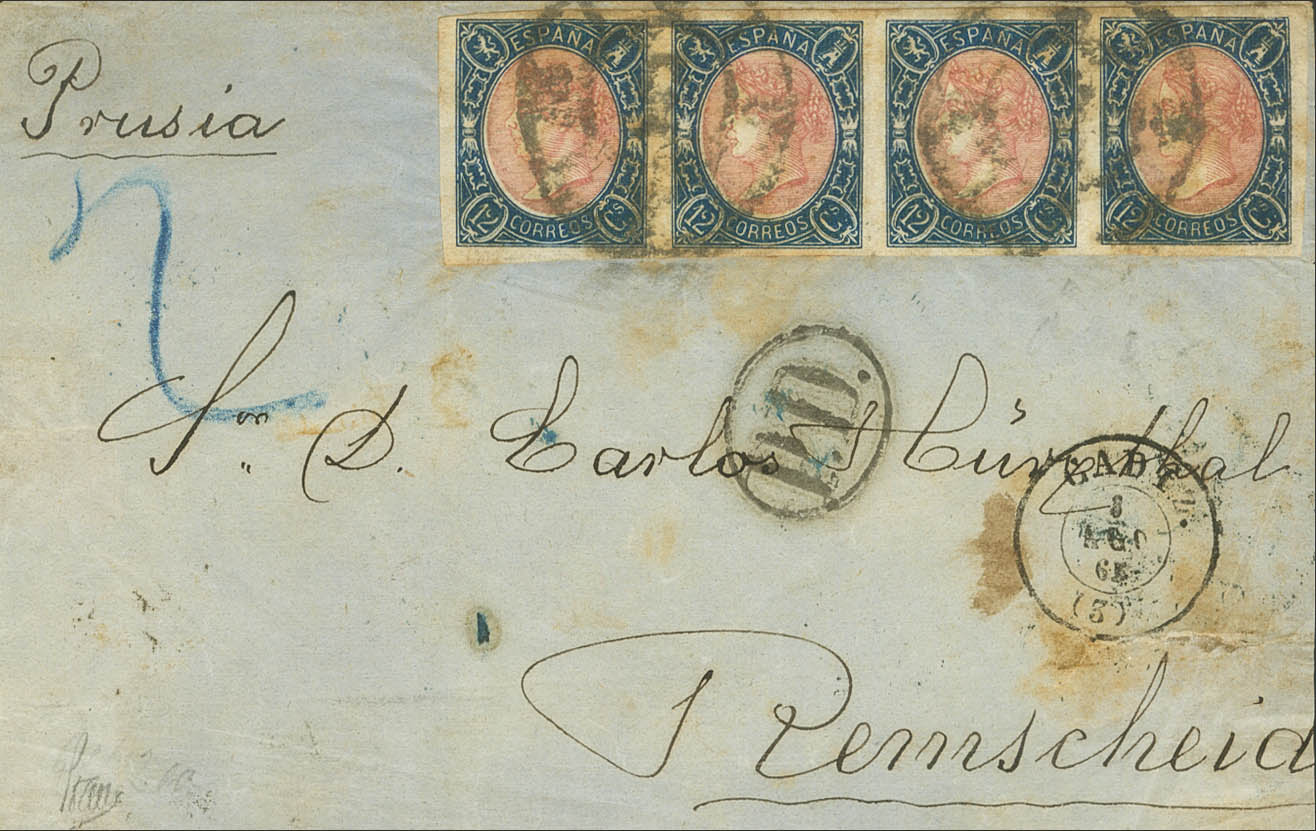 Prusia
ESPAÑA ESPAÑA ESPAÑA ESPAÑA
12 CORREOS Cs 12 CORREOS Cs 12 CORREOS Cs 12 CORREOS Cs
2
P.D.
Sr. D. Carlos
CADIZ.
AGO
65
(3)
1
Remscheid